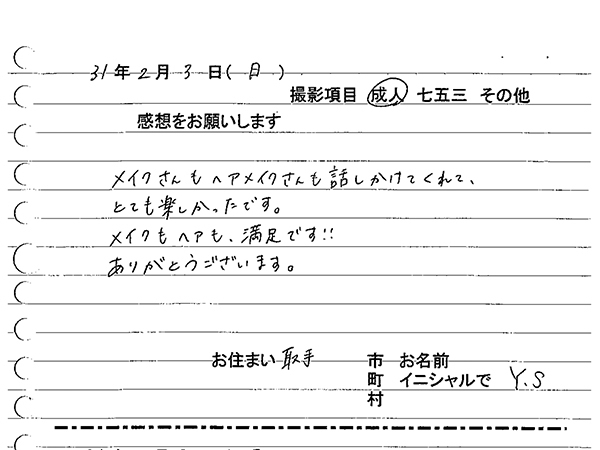 31年2月3日(日)
撮影項目 成人 七五三 その他
感想をお願いします
メイクさんもヘアメイクさんも話しかけてくれて、
とても楽しかったです。
メイクもヘアも、満足です!!
ありがとうございます。
お住まい 取手 市 お名前
町 イニシャルで Y.S
村